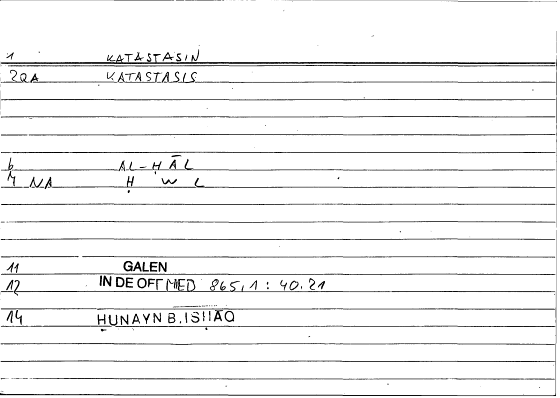 1 KATASTASIN
2QA KATASTASIS
6 AL-ḤĀL
7 NA Ḥ W L
11 GALEN
12 IN DE OFF MED 865,1 : 40.21
14 ḤUNAYN B. ISḤĀQ